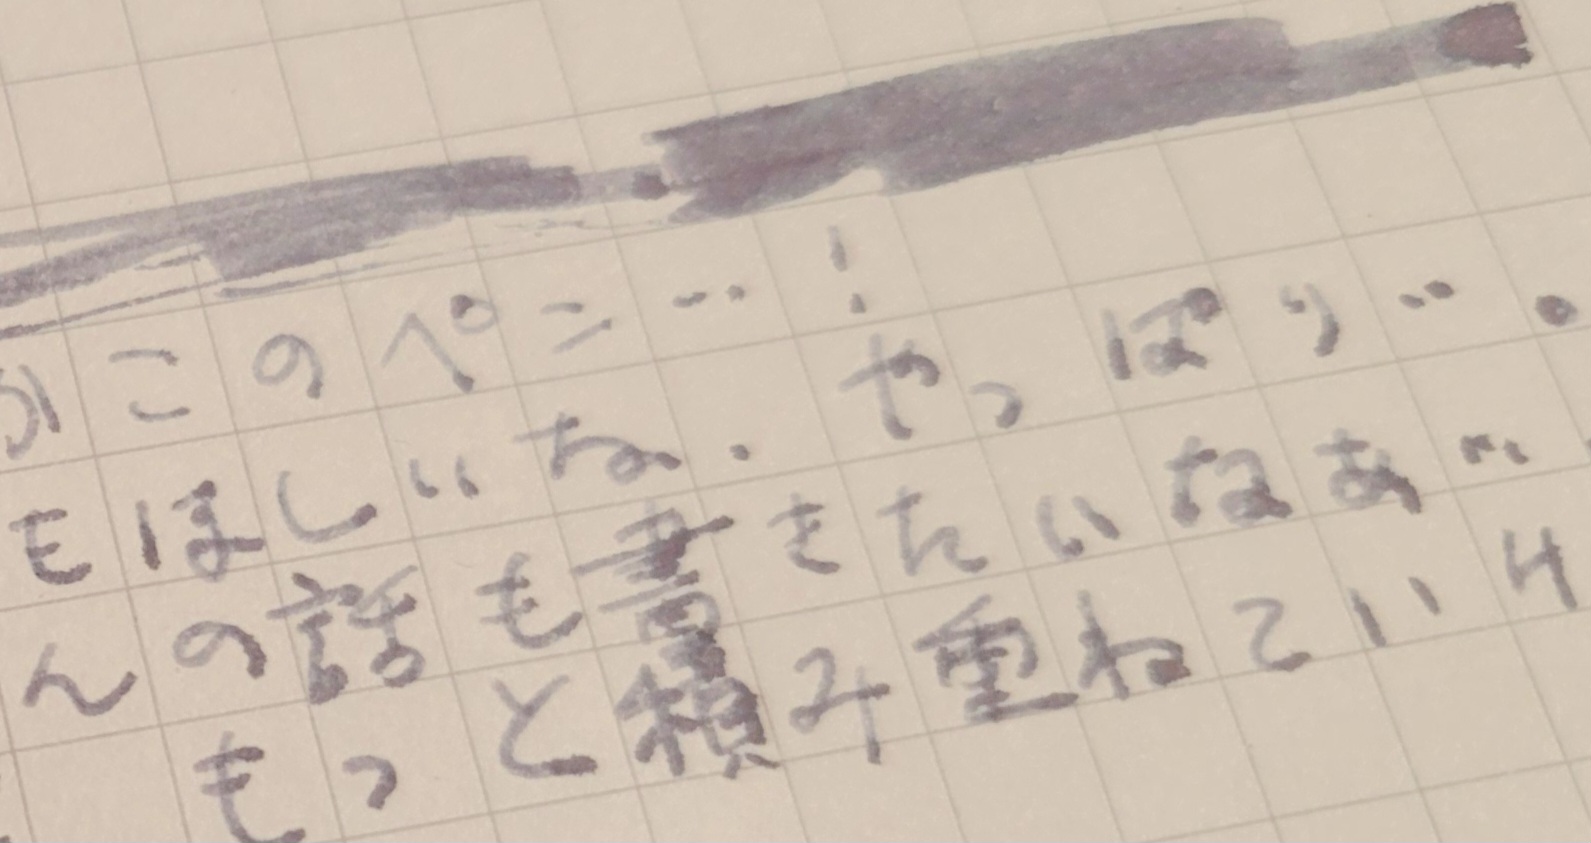 このペン…! やっぱり….
もほしいね. 書きたいなあ…
んの話も積み重ねていけ
もっと